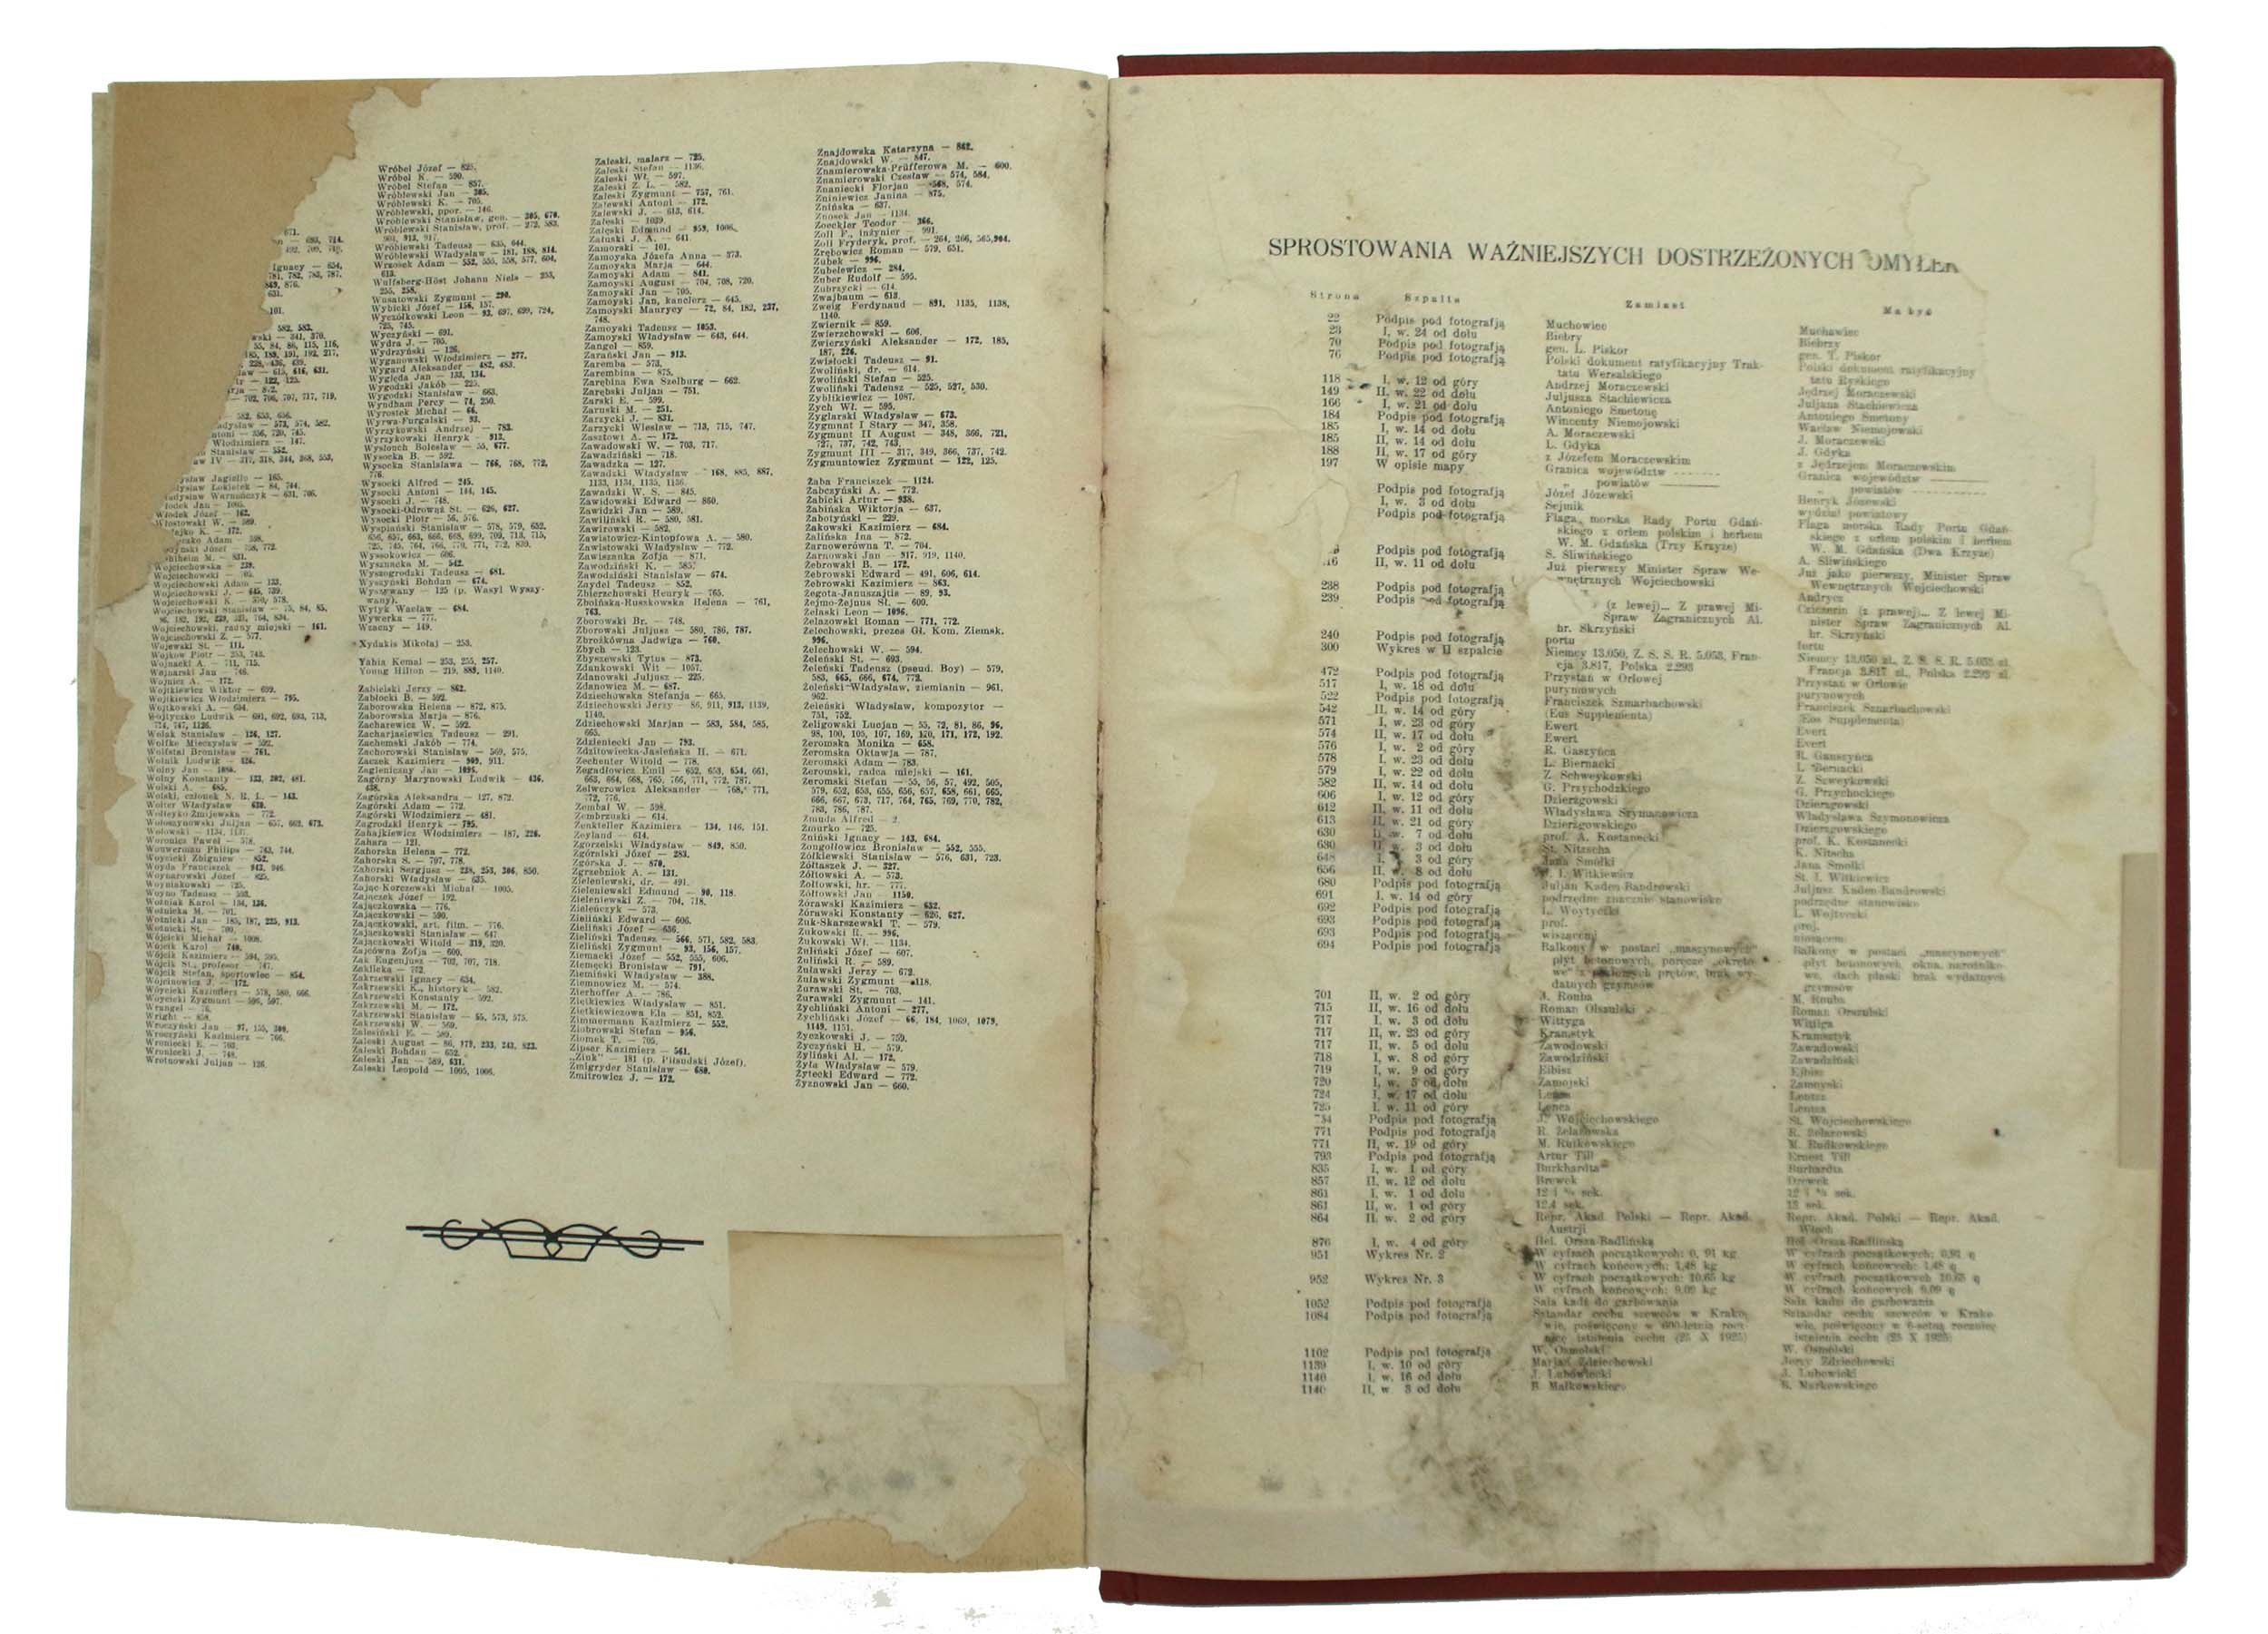 671.
— 693, 714.
492, 709, 718.
Ignacy — 654,
781, 782, 783, 787.
849, 876.
631.
101.
582, 583.
— 341, 370.
55, 84, 86, 115, 116,
185, 189, 191, 192, 217,
228, 436, 439.
— 615, 616, 631.
— 122, 125.
— 702, 706, 707, 717, 719,
582, 653, 656.
— 573, 574, 582.
— 356, 720, 745.
Włodzimierz — 147.
Stanisław — 552.
IV — 317, 318, 344, 368, 553,
Jagiełło — 165.
Łokietek — 84, 744.
Warneńczyk — 631, 706.
Jan — 1095.
Włodek Józef — 162.
W. — 589.
K. — 172.
Adam — 398.
Józef — 758, 772.
M. — 831.
Wojciechowska — 239.
Wojciechowski
Wojciechowski Adam — 133.
Wojciechowski J. — 645, 739.
Wojciechowski K. — 550, 578.
Wojciechowski Stanisław — 75, 84, 85,
86, 182, 192, 239, 321, 764, 834.
Wojciechowski, radny miejski — 161.
Wojciechowski Z. — 577.
Wojewski St. — 111.
Wojkow Piotr — 253, 743.
Wojnacki A. — 711, 715.
Wojnarski Jan — 746.
Wojnicz A. — 172.
Wojtkiewicz Wiktor — 699.
Wojtkiewicz Włodzimierz — 795.
Wojtkowski A. — 634.
Wojtyczko Ludwik — 691, 692, 693, 713,
734, 747, 1126.
Wolak Stanisław — 126, 127.
Wolfke Mieczysław — 592.
Wolfstal Bronisław — 761.
Wolnik Ludwik — 126.
Wolny Jan — 1086.
Wolny Konstanty — 133, 202, 481.
Wolski A. — 685.
Wolski, członek N. R. L. — 143.
Wolter Władysław — 630.
Wołłeyko-Żmijewska — 772.
Wołoszynowski Juljan — 657, 663, 673.
Wołowski — 1134, 1137.
Woronicz Paweł — 578.
Wouwerman Philips — 743, 744.
Woycicki Zbigniew — 852.
Woyda Franciszek — 942, 946.
Woynarowski Józef — 825.
Woyniakowski — 725.
Woyno Tadeusz — 593.
Woźniak Karol — 134, 136.
Woźnicka M. — 701.
Woźnicki Jan — 185, 187, 225, 913.
Woźnicki St. — 700.
Wójcicki Michał — 1008.
Wójcik Karol — 740.
Wójcik Kazimierz — 594, 595.
Wójcik St., profesor — 747.
Wójcik Stefan, sportowiec — 854.
Wójcinowicz J. — 172.
Wóycicki Kazimierz — 578, 580, 666.
Woycicki Zygmunt — 596, 597.
Wrangel — 76.
Wright — 858.
Wroczyński Jan — 97, 155, 300.
Wroczyński Kazimierz — 766.
Wroniecki E. — 703.
Wroniecki J. — 748.
Wrotnowski Juljan — 126.
Wróbel Józef — 825.
Wróbel K. — 590.
Wróbel Stefan — 857.
Wróblewski Jan — 305.
Wróblewski K. — 705.
Wróblewski, ppor. — 146.
Wróblewski Stanisław, gen. — 305, 670.
Wróblewski Stanisław, prof. — 272, 583,
901, 913, 917.
Wróblewski Tadeusz — 635, 644.
Wróblewski Władysław — 181, 188, 814.
Wrzosek Adam — 552, 555, 558, 577, 604,
613.
Wulfsberg-Höst Johann Niels — 253,
255, 258.
Wusatowski Zygmunt — 290.
Wybicki Józef — 156, 157.
Wyczółkowski Leon — 93, 697, 699, 724,
725, 745.
Wyczyński — 691.
Wydra J. — 705.
Wydrzyński — 126.
Wyganowski Włodzimierz — 277.
Wygard Aleksander — 482, 483.
Wyględa Jan — 133, 134.
Wygodzki Jakób — 225.
Wygodzki Stanisław — 663.
Wyndham Percy — 74, 250.
Wyrostek Michał — 66.
Wyrwa-Furgalski — 93.
Wyrzykowski Andrzej — 783.
Wyrzykowski Henryk — 913.
Wysłouch Bolesław — 55, 677.
Wysocka B. — 592.
Wysocka Stanisława — 766, 768, 772,
776.
Wysocki Alfred — 245.
Wysocki Antoni — 144, 145.
Wysocki J. — 748.
Wysocki-Odrowąż St. — 626, 627.
Wysocki Piotr — 56, 576.
Wyspiański Stanisław — 578, 579, 652,
656, 657, 663, 666, 668, 699, 709, 713, 715,
725, 745, 764, 766, 770, 771, 772, 839.
Wyssokowicz — 606.
Wysznacka M. — 542.
Wyszogrodzki Tadeusz — 681.
Wyszyński Bohdan — 674.
Wyszywany — 125 (p. Wasyl Wyszy-
wany).
Wytyk Wacław — 484.
Wywerka — 777.
Wzacny — 149.
Xydakis Mikołaj — 253.
Yahia Kemal — 253, 255, 257.
Young Hilton — 219, 889, 1140.
Zabielski Jerzy — 862.
Zabłocki B. — 592.
Zaborowska Helena — 872, 875.
Zaborowska Marja — 876.
Zacharewicz W. — 592.
Zacharjasiewicz Tadeusz — 291.
Zachemski Jakób — 774.
Zachorowski Stanisław — 569, 575.
Zaczek Kazimierz — 909, 911.
Zagleniczny Jan — 1095.
Zagórny Marynowski Ludwik — 436,
438.
Zagórska Aleksandra — 127, 872.
Zagórski Adam — 772.
Zagórski Włodzimierz — 481.
Zagrodzki Henryk — 795.
Zahajkiewicz Włodzimierz — 187, 226.
Zahara — 121.
Zahorska Helena — 772.
Zahorska S. — 797, 778.
Zahorski Sergjusz — 238, 253, 306, 850.
Zahorski Władysław — 635.
Zając-Korczewski Michał — 1005.
Zajączek Józef — 192.
Zajączkowska — 776.
Zajączkowski — 590.
Zajączkowski, art. film. — 776.
Zajączkowski Stanisław — 647.
Zajączkowski Witold — 319, 320.
Zajcówna Zofja — 600.
Zak Eugenjusz — 702, 707, 718.
Zaklicka — 772.
Zakrzewski Ignacy — 634.
Zakrzewski K., historyk — 582.
Zakrzewski Konstanty — 592.
Zakrzewski M. — 172.
Zakrzewski Stanisław — 65, 573, 575.
Zakrzewski W. — 569.
Zalesiński E. — 589.
Zaleski August — 86, 179, 233, 243, 823.
Zaleski Bohdan — 652.
Zaleski Jan — 589, 631.
Zaleski Leopold — 1005, 1006.
Zaleski, malarz — 725.
Zaleski Stefan — 1136.
Zaleski Wł. — 597.
Zaleski Z. L. — 582.
Zaleski Zygmunt — 757, 761.
Zalewski Antoni — 172.
Zalewski J. — 613, 614.
Załeski — 1039.
Załęski Edmund — 959, 1006.
Załuski J. A. — 641.
Zamorski — 101.
Zamoyska Józefa Anna — 373.
Zamoyska Marja — 644.
Zamoyski Adam — 841.
Zamoyski August — 704, 708, 720.
Zamoyski Jan — 705.
Zamoyski Jan, kanclerz — 645.
Zamoyski Maurycy — 72, 84, 182, 237,
748.
Zamoyski Tadeusz — 1053.
Zamoyski Władysław — 643, 644.
Zangel — 859.
Zarański Jan — 913.
Zaremba — 573.
Zarembina — 875.
Zarębina Ewa Szelburg — 662.
Zarębski Juljan — 751.
Zarski E. — 599.
Zaruski M. — 251.
Zarzycki J. — 831.
Zarzycki Wiesław — 713, 715, 747.
Zasztowt A. — 172.
Zawadowski W. — 703, 717.
Zawadziński — 718.
Zawadzka — 127.
Zawadzki Władysław — 168, 885, 887,
1133, 1134, 1135, 1136.
Zawadzki W. S. — 845.
Zawidowski Edward — 860.
Zawidzki Jan — 589.
Zawiliński R. — 580, 581.
Zawirowski — 582.
Zawistowicz-Kintopfowa A. — 580.
Zawistowski Władysław — 772.
Zawiszanka Zofja — 871.
Zawodziński K. — 585.
Zawodziński Stanisław — 674.
Zaydel Tadeusz — 852.
Zbierzchowski Henryk — 765.
Zboińska-Ruszkowska Helena — 761,
763.
Zborowski Br. — 748.
Zborowski Juljusz — 580, 786, 787.
Zbrożkówna Jadwiga — 760.
Zbych — 123.
Zbyszewski Tytus — 873.
Zdankowski Wit — 1057.
Zdanowski Juljusz — 225.
Zdanowicz M. — 687.
Zdziechowska Stefanja — 665.
Zdziechowski Jerzy — 86, 911, 913, 1139,
1140.
Zdziechowski Marjan — 583, 584, 585,
665.
Zdzieniecki Jan — 793.
Zdzitowiecka-Jasieńska H. — 671.
Zechenter Witold — 778.
Zegadłowicz Emil — 652, 653, 654, 661,
663, 664, 668, 765, 766, 771, 772, 787.
Zelwerowicz Aleksander — 768, 771,
772, 776.
Zembal W. — 598.
Zembrzuski — 614.
Zenkteller Kazimierz — 134, 146, 151.
Zeyland — 614.
Zgorzelski Władysław — 849, 850.
Zgórniski Józef — 283.
Zgórska J. — 870.
Zgrzebniok A. — 131.
Zieleniewski, dr. — 491.
Zieleniewski Edmund — 90, 118.
Zieleniewski Z. — 704, 718.
Zieleńczyk — 573.
Zieliński Edward — 606.
Zieliński Józef — 636.
Zieliński Tadeusz — 566, 571, 582, 583.
Zieliński Zygmunt — 93, 156, 157.
Ziemacki Józef — 552, 555, 606.
Ziemęcki Bronisław — 791.
Ziemiński Władysław — 388.
Ziemnowicz M. — 574.
Zierhoffer A. — 786.
Ziętkiewicz Władysław — 851.
Ziętkiewiczowa Ela — 851, 852.
Zimmermann Kazimierz — 552.
Ziobrowski Stefan — 956.
Ziomek T. — 705.
Zipser Kazimierz — 561.
„Ziuk" — 181 (p. Piłsudski Józef).
Zmigryder Stanisław — 680.
Zmitrowicz J. — 172.
Znajdowska Katarzyna — 862.
Znajdowski W. — 847.
Znamierowska-Prüfferowa M. — 600.
Znamierowski Czesław — 574, 584.
Znaniecki Florjan — 568, 574.
Zniniewicz Janina — 875.
Znińska — 637.
Znosek Jan — 1134.
Zoeckler Teodor — 366.
Zoll F., inżynier — 991.
Zoll Fryderyk, prof. — 264, 266, 565, 904.
Zrębowicz Roman — 579, 651.
Zubek — 996.
Zubelewicz — 284.
Zuber Rudolf — 595.
Zubrzycki — 614.
Zwajbaum — 613.
Zweig Ferdynand — 891, 1135, 1138,
1140.
Zwiernik — 859.
Zwierzchowski — 606.
Zwierzyński Aleksander — 172, 185,
187, 226.
Zwisłocki Tadeusz — 91.
Zwoliński, dr. — 614.
Zwoliński Stefan — 525.
Zwoliński Tadeusz — 525, 527, 530.
Zyblikiewicz — 1087.
Zych Wł. — 595.
Zyglarski Władysław — 673.
Zygmunt I Stary — 347, 358.
Zygmunt II August — 348, 366, 721,
727, 737, 742, 743.
Zygmunt III — 317, 349, 366, 737, 742.
Zygmuntowicz Zygmunt — 122, 125.
Żaba Franciszek — 1124.
Żabczyński A. — 772.
Żabicki Artur — 938.
Żabińska Wiktorja — 637.
Żabotyński — 229.
Żakowski Kazimierz — 684.
Żalińska Ina — 872.
Żarnowerówna T. — 704.
Żarnowski Jan — 917, 919, 1140.
Żebrowski B. — 172.
Żebrowski Edward — 491, 606, 614.
Żebrowski Kazimierz — 863.
Żegota-Januszajtis — 89, 93.
Żejmo-Żejmis St. — 600.
Żelaski Leon — 1096.
Żelazowski Roman — 771, 772.
Żelechowski, prezes Gł. Kom. Ziemsk.
996.
Żelechowski W. — 594.
Żeleński St. — 693.
Żeleński Tadeusz (pseud. Boy) — 579,
583, 665, 666, 674, 772.
Żeleński Władysław, ziemianin — 961,
962.
Żeleński Władysław, kompozytor —
751, 752.
Żeligowski Lucjan — 55, 72, 81, 86, 96,
98, 100, 105, 107, 169, 170, 171, 172, 192.
Żeromska Monika — 658.
Żeromska Oktawja — 787.
Żeromski Adam — 783.
Żeromski, radca miejski — 161.
Żeromski Stefan — 55, 56, 57, 492, 505,
579, 652, 653, 655, 656, 657, 658, 661, 665,
666, 667, 673, 717, 764, 765, 769, 770, 782,
783, 786, 787.
Żmuda Alfred — 2
Żmurko — 725.
Żniński Ignacy — 143, 684.
Żongołłowicz Bronisław — 552, 555.
Żółkiewski Stanisław — 576, 631, 723.
Żółtaszek J. — 327.
Żółtowski A. — 573.
Żółtowski, hr. — 777.
Żółtowski Jan — 1150.
Żórawski Kazimierz — 632.
Żórawski Konstanty — 626, 627.
Żuk-Skarszewski T. — 579.
Żukowski R. — 996.
Żukowski Wł. — 1134.
Żuliński Józef — 607.
Żuliński R. — 589.
Żuławski Jerzy — 672.
Żuławski Zygmunt — 118.
Żurawski St. — 703.
Żurawski Zygmunt — 141.
Żychliński Antoni — 277.
Żychliński Józef — 66, 184, 1069, 1079,
1149, 1151.
Życzkowski J. — 759.
Życzyński H. — 579.
Żyliński Al. — 172.
Żyła Władysław — 579.
Żytecki Edward — 772.
Żyznowski Jan — 660.
SPROSTOWANIA WAŻNIEJSZYCH DOSTRZEŻONYCH OMYŁEK
Strona Szpalta Zamiast Ma być
22 Podpis pod fotografją Muchowiec Muchawiec
23 I, w. 24 od dołu Biebry Biebrzy
70 Podpis pod fotografją gen. L. Piskor gen. T. Piskor
76 Podpis pod fotografją Polski dokument ratyfikacyjny Trak- Polski dokument ratyfikacyjny
tatu Wersalskiego tatu Ryskiego
118 I, w. 12 od góry Andrzej Moraczewski Jędrzej Moraczewski
149 II, w. 22 od dołu Juljusza Stachiewicza Juljana Stachiewicza
166 I, w. 21 od dołu Antoniego Smetonę Antoniego Smetony
184 Podpis pod fotografją Wincenty Niemojowski Wacław Niemojowski
185 I, w. 14 od dołu A. Moraczewski J. Moraczewski
185 II, w. 14 od dołu L. Gdyka J. Gdyka
188 II, w. 17 od góry z Józefem Moraczewskim z Jędrzejem Moraczewskim
197 W opisie mapy Granica województw - - - - Granica województw ———
„ powiatów ——— „ powiatów - - - -
Podpis pod fotografją Józef Józewski Henryk Józewski
I, w. 3 od dołu Sejmik wydział powiatowy
Podpis pod fotografją Flaga morska Rady Portu Gdań- Flaga morska Rady Portu Gdań-
skiego z orłem polskim i herbem skiego z orłem polskim i herbem
W. M. Gdańska (Trzy Krzyże) W. M. Gdańska (Dwa Krzyże)
Podpis pod fotografją S. Śliwińskiego A. Śliwińskiego
II, w. 11 od dołu Już pierwszy Minister Spraw We- Już jako pierwszy, Minister Spraw
wnętrznych Wojciechowski Wewnętrznych Wojciechowski
238 Podpis pod fotografją Andrycz
239 Podpis pod fotografją (z lewej)... Z prawej Mi- Cziczerin (z prawej)... Z lewej Mi-
Spraw Zagranicznych Al. nister Spraw Zagranicznych Al.
hr. Skrzyński hr. Skrzyński
240 Podpis pod fotografją portu fortu
300 Wykres w II szpalcie Niemcy 13.050, Z. S. S. R. 5.053, Fran- Niemcy 13.050 zł., Z. S. S. R. 5.053 zł.
cja 3.817, Polska 2.293 Francja 3.817 zł., Polska 2.293 zł.
472 Podpis pod fotografją Przystań w Orłowej Przystań w Orłowie
517 I, w. 18 od dołu purymowych purynowych
522 Podpis pod fotografją Franciszek Szmarbachowski Franciszek Smarbachowski
542 II, w. 14 od góry (Eus Supplementa) (Eos Supplementa)
571 I, w. 23 od góry Ewert Evert
574 II, w. 17 od dołu Ewert Evert
576 I, w. 2 od góry R. Gaszyńca R. Ganszyńca
578 II, w. 23 od dołu L. Biernacki L. Bernacki
579 I, w. 22 od dołu Z. Schweykowski Z. Szweykowski
582 II, w. 14 od dołu G. Przychodzkiego G. Przychockiego
606 I, w. 12 od góry Dzierżgowski Dzierzgowski
612 II, w. 11 od dołu Władysława Szymanowicza Władysława Szymonowicza
613 II, w. 21 od góry Dzierżgowskiego Dzierzgowskiego
630 II, w. 7 od dołu prof. A. Kostanecki prof. K. Kostanecki
630 w. 3 od dołu St. Nitscha K. Nitscha
648 I, 3 od góry Jana Smółki Jana Smołki
656 II, w. 8 od dołu I. Witkiewicz St. I. Witkiewicz
680 Podpis pod fotografją Juljan Kaden-Bandrowski Juljusz Kaden-Bandrowski
691 I, w. 14 od góry podrzędne znacznie stanowisko podrzędne stanowisko
692 Podpis pod fotografją L. Woytyczki L. Wojtyczki
693 Podpis pod fotografją prof. proj.
693 Podpis pod fotografją wiszącemi
694 Podpis pod fotografją Balkony w postaci „maszynowych" Balkony w postaci „maszynowych"
płyt betonowych, poręcze „okręto- płyt betonowych okna narożniko-
we" z prętów, brak wy- we, dach płaski brak wydatnych
datnych gzymsów gzymsów
701 II, w. 2 od góry J. Rouba M. Rouba
715 II, w. 16 od dołu Roman Olszulski Roman Orszulski
717 I, w. 3 od dołu Wittyga Wittiga
717 II, w. 23 od góry Kranstyk Kramsztyk
717 II, w. 5 od dołu Zawodowski Zawadowski
718 I, w. 8 od góry Zawodziński Zawadziński
719 I, w. 9 od góry Eibisz
720 I, w. 5 od dołu Zamojski Zamoyski
724 I, w. 17 od dołu Lentza
725 I, w. 11 od góry Lenca Lentza
754 Podpis pod fotografją J. Wojciechowskiego St. Wojciechowskiego
771 Podpis pod fotografją R. Żelazowska R. Żelazowski
771 II, w. 19 od góry M. Rutkowskiego M. Rudkowskiego
793 Podpis pod fotografją Artur Till Ernest Till
835 I, w. 1 od góry Burkhardta Burhardta
857 II, w. 12 od dołu Brewek Drewek
861 I, w. 1 od dołu sek. sek.
861 II, w. 1 od góry 12.4 sek. 13 sek.
864 II, w. 2 od góry Repr. Akad. Polski — Repr. Akad. Repr. Akad. Polski — Repr. Akad.
Austrji Włoch
876 I, w. 4 od góry Hel. Orsza-Radlińska Hel. Orsza-Radlińska
951 Wykres Nr. 2 W cyfrach początkowych: 0, 91 kg W cyfrach początkowych: 0,91 q
W cyfrach końcowych: 1,48 kg W cyfrach końcowych: 1,48 q
952 Wykres Nr. 3 W cyfrach początkowych: 10,65 kg W cyfrach początkowych 10,65 q
W cyfrach końcowych: 9,09 kg W cyfrach końcowych 9,09 q
1052 Podpis pod fotografją Sala kadź do garbowania Sala kadzi do garbowania
1084 Podpis pod fotografją Sztandar cechu szewców w Krako- Sztandar cechu szewców w Krako-
wie, poświęcony w 600-letnią rocz- wie, poświęcony w 6-setną rocznicę
nicę istnienia cechu (25 X 1925) istnienia cechu (25 X 1925)
1102 Podpis pod fotografją W. Osmolski W. Osmólski
1139 I, w. 10 od góry Marjan Zdziechowski Jerzy Zdziechowski
1140 I, w. 16 od dołu J. Lubowiecki J. Lubowicki
1140 II, w 3 od dołu B. Malkowskiego B. Markowskiego